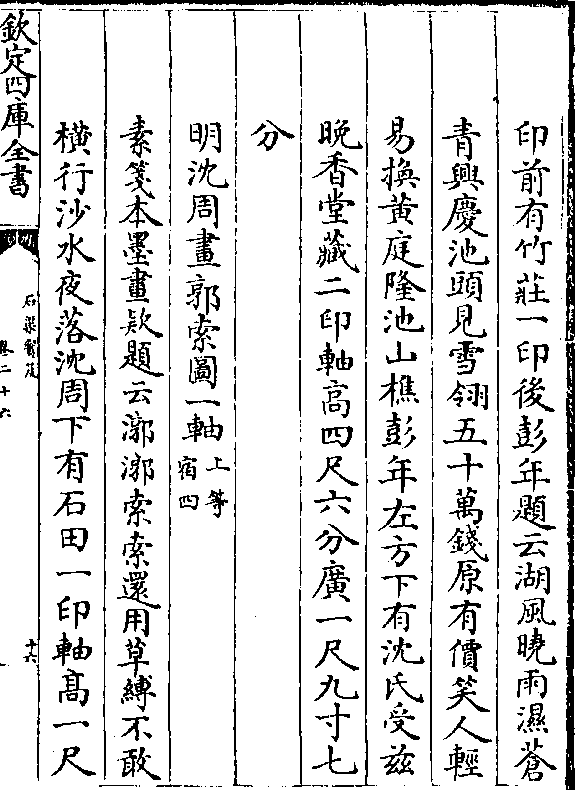 印前有竹莊一印後彭年題云湖風曉雨濕蒼
青興慶池頭見雪翎五十萬錢原有價笑人輕
易換黄庭隆池山樵彭年左方下有沈氏受兹
晩香堂藏二印軸髙四尺六分廣一尺九寸七
分
明沈周畫郭索圖一軸上等宿四
素箋本墨畫款題云漷漷索索還用草縛不敢
横行沙水夜落沈周下有石田一印軸髙一尺
欽定四庫全書
石渠寳笈
卷二十六
十六